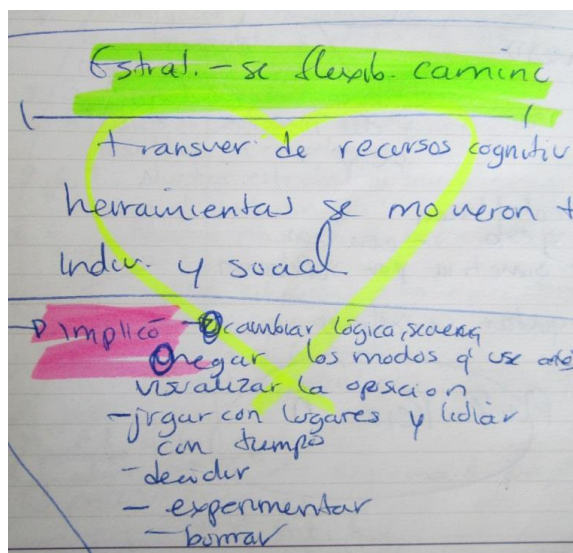 Estrat. - se flexib. camino
transver de recursos cognitiv
herramientas se movieron t
indiv. y social
implicó - cambiar lógica,
negar los modos q' use
visualizar la opsicion
- jugar con lugares y lidiar
con tiempo
- decidir
- experimentar
- borrar